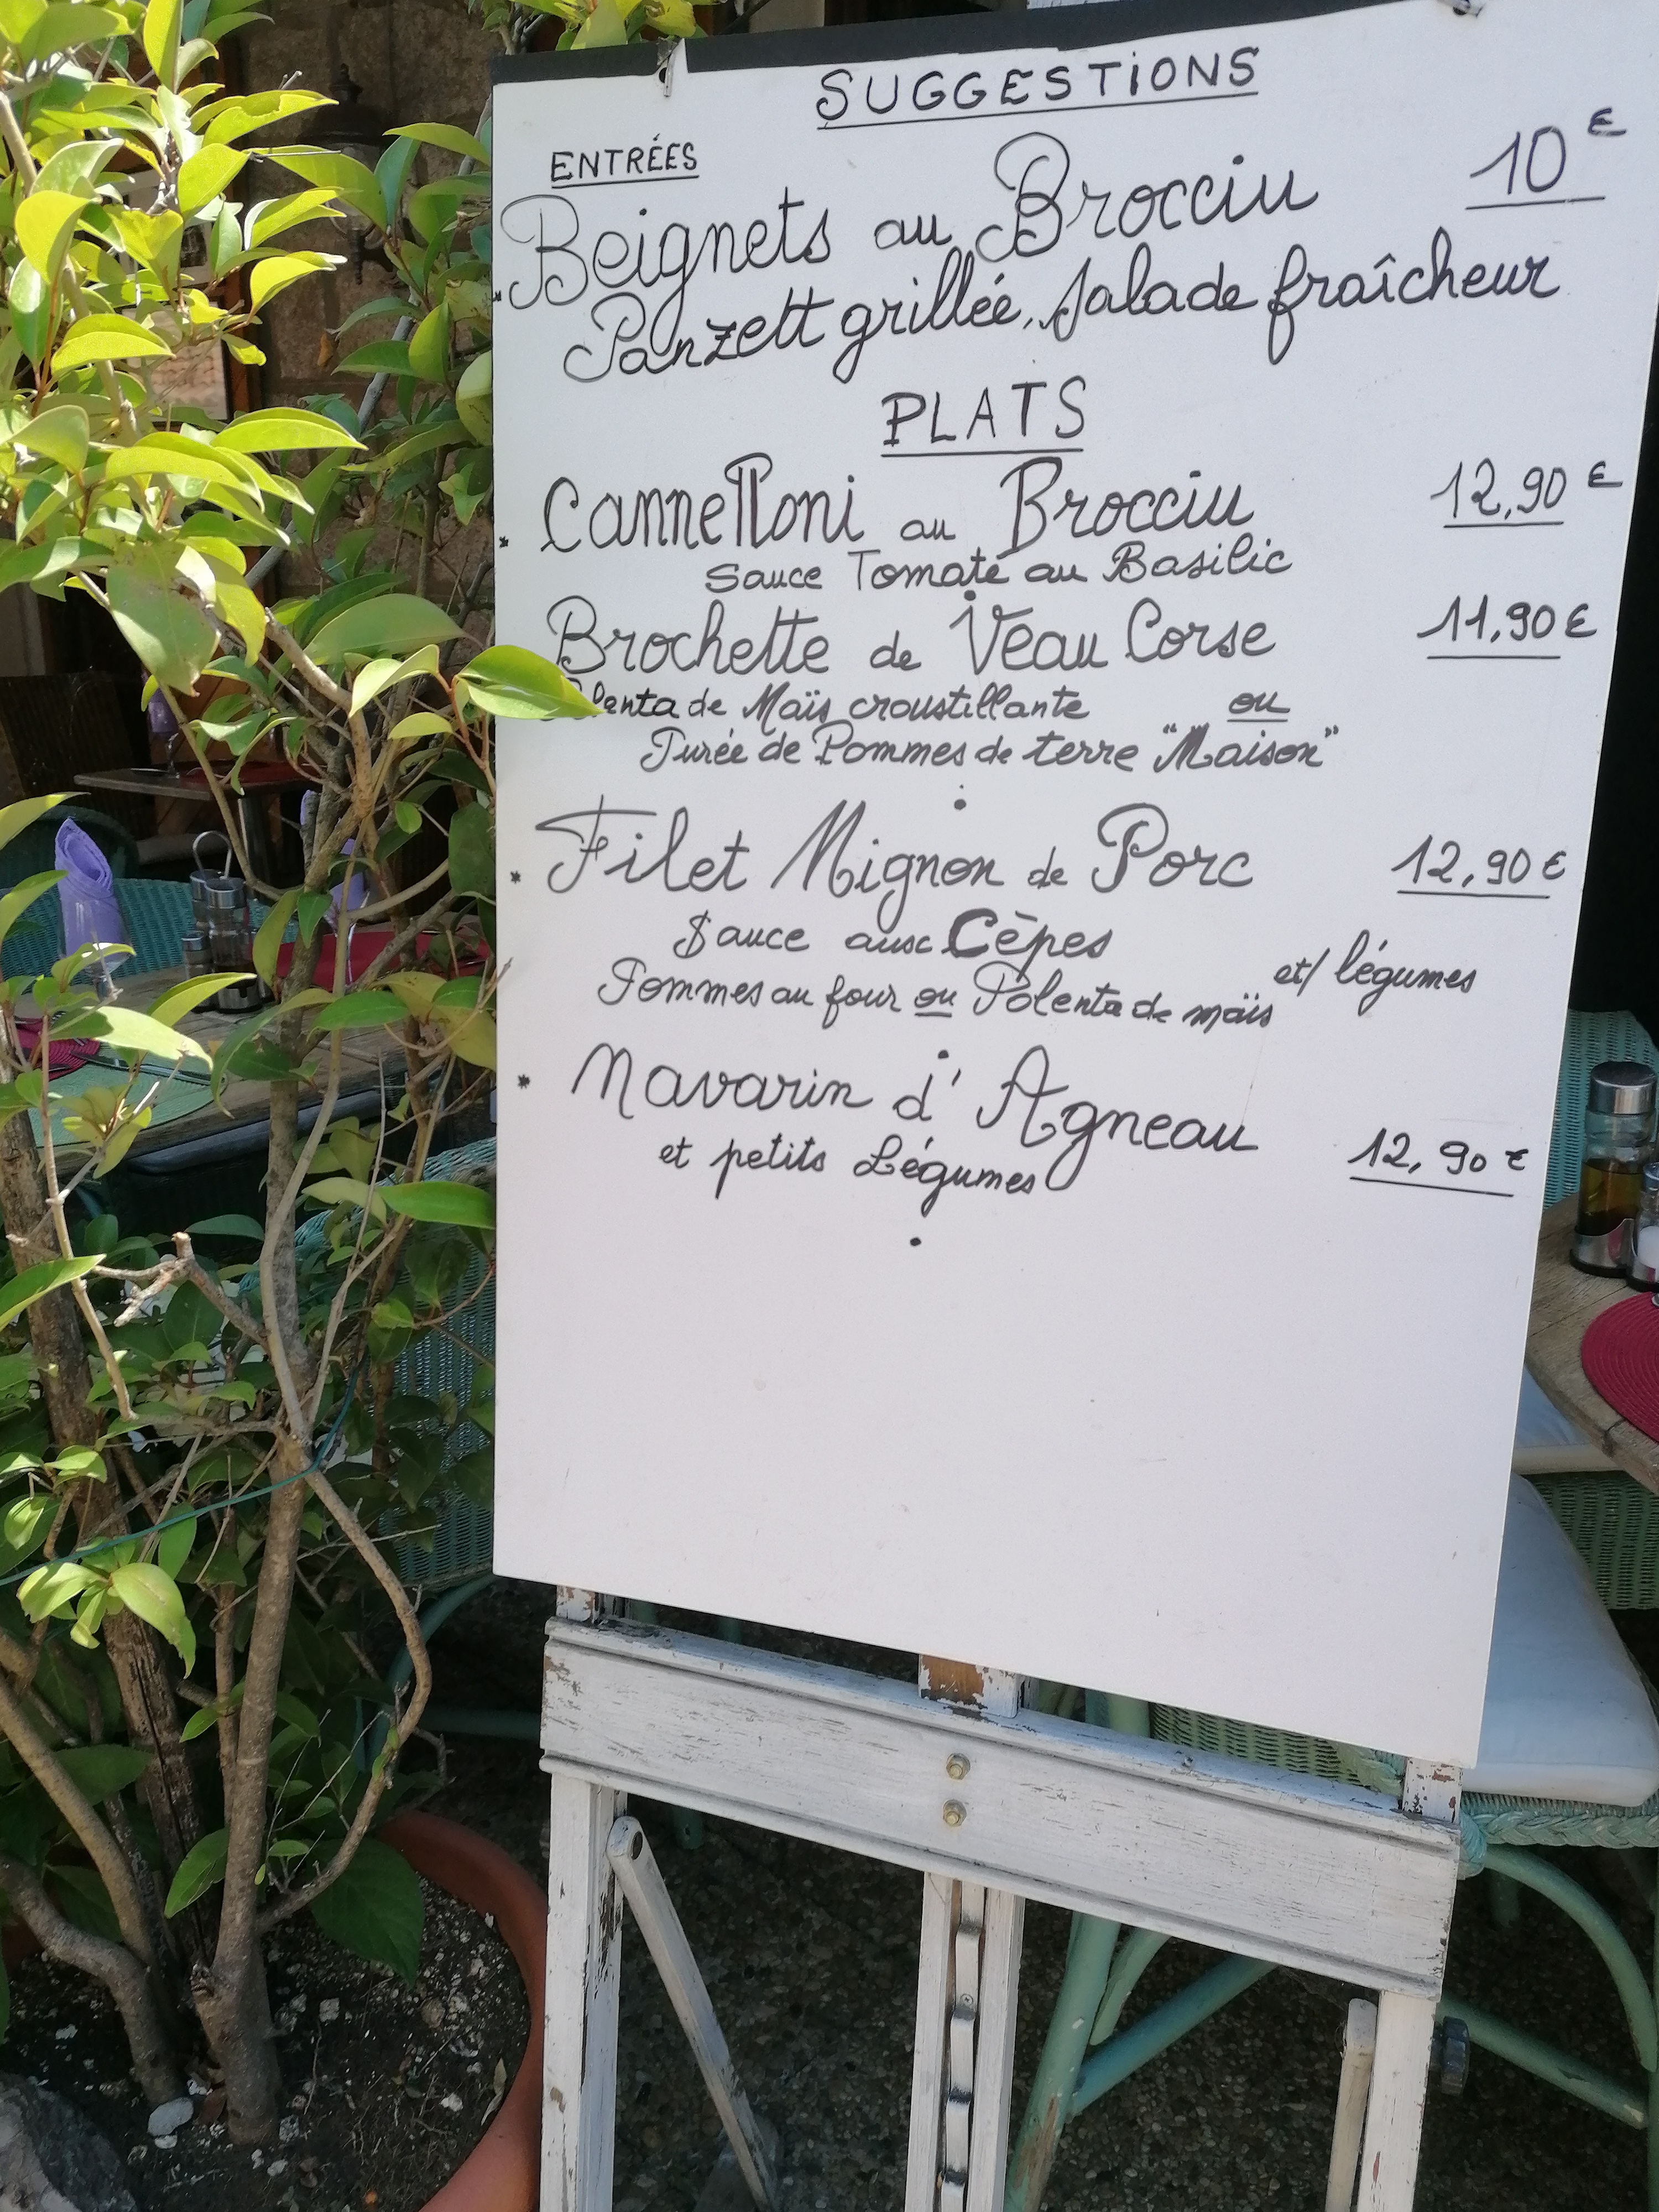 SUGGESTIONS
ENTRÉES
Beignets au Brocciu 10€
Panzett grillée, salade fraîcheur
PLATS
* Cannelloni au Brocciu 12,90€
Sauce Tomate au Basilic
Brochette de Veau Corse 11,90€
lenta de Maïs croustillante ou
Purée de Pommes de terre "Maison"
* Filet Mignon de Porc 12,90€
Sauce aux Cèpes
Pommes au four ou Polenta de maïs et/ légumes
* Navarin d'Agneau
et petits Légumes 12,90€